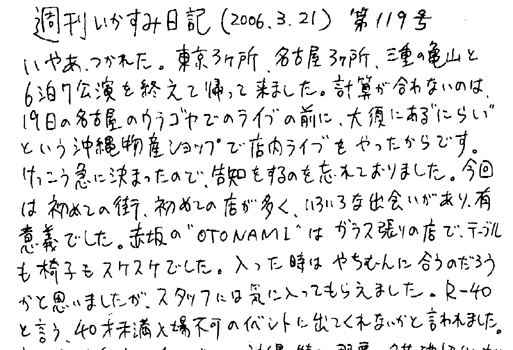 週刊いかすみ日記(2006.3.21) 第119号
いやあ、つかれた。東京3ヶ所、名古屋3ヶ所、三重の亀山と
6泊7公演を終えて帰って来ました。計算が合わないのは、
19日の名古屋のウラゴヤでのライブの前に、大須にある"にらい"
という沖縄物産ショップで店内ライブをやったからです。
けっこう急に決まったので、告知をするのを忘れておりました。今回
は初めての街、初めての店が多く、いろいろな出会いがあり、有
意義でした。赤坂の"OTONAMI"はガラス張りの店で、テーブル
も椅子もスケスケでした。入った時はやちむんに合うのだろう
かと思いましたが、スタッフには気に入ってもらえました。R-40
と言う、40才未満入場不可のイベントに出てくれないかと言われました。